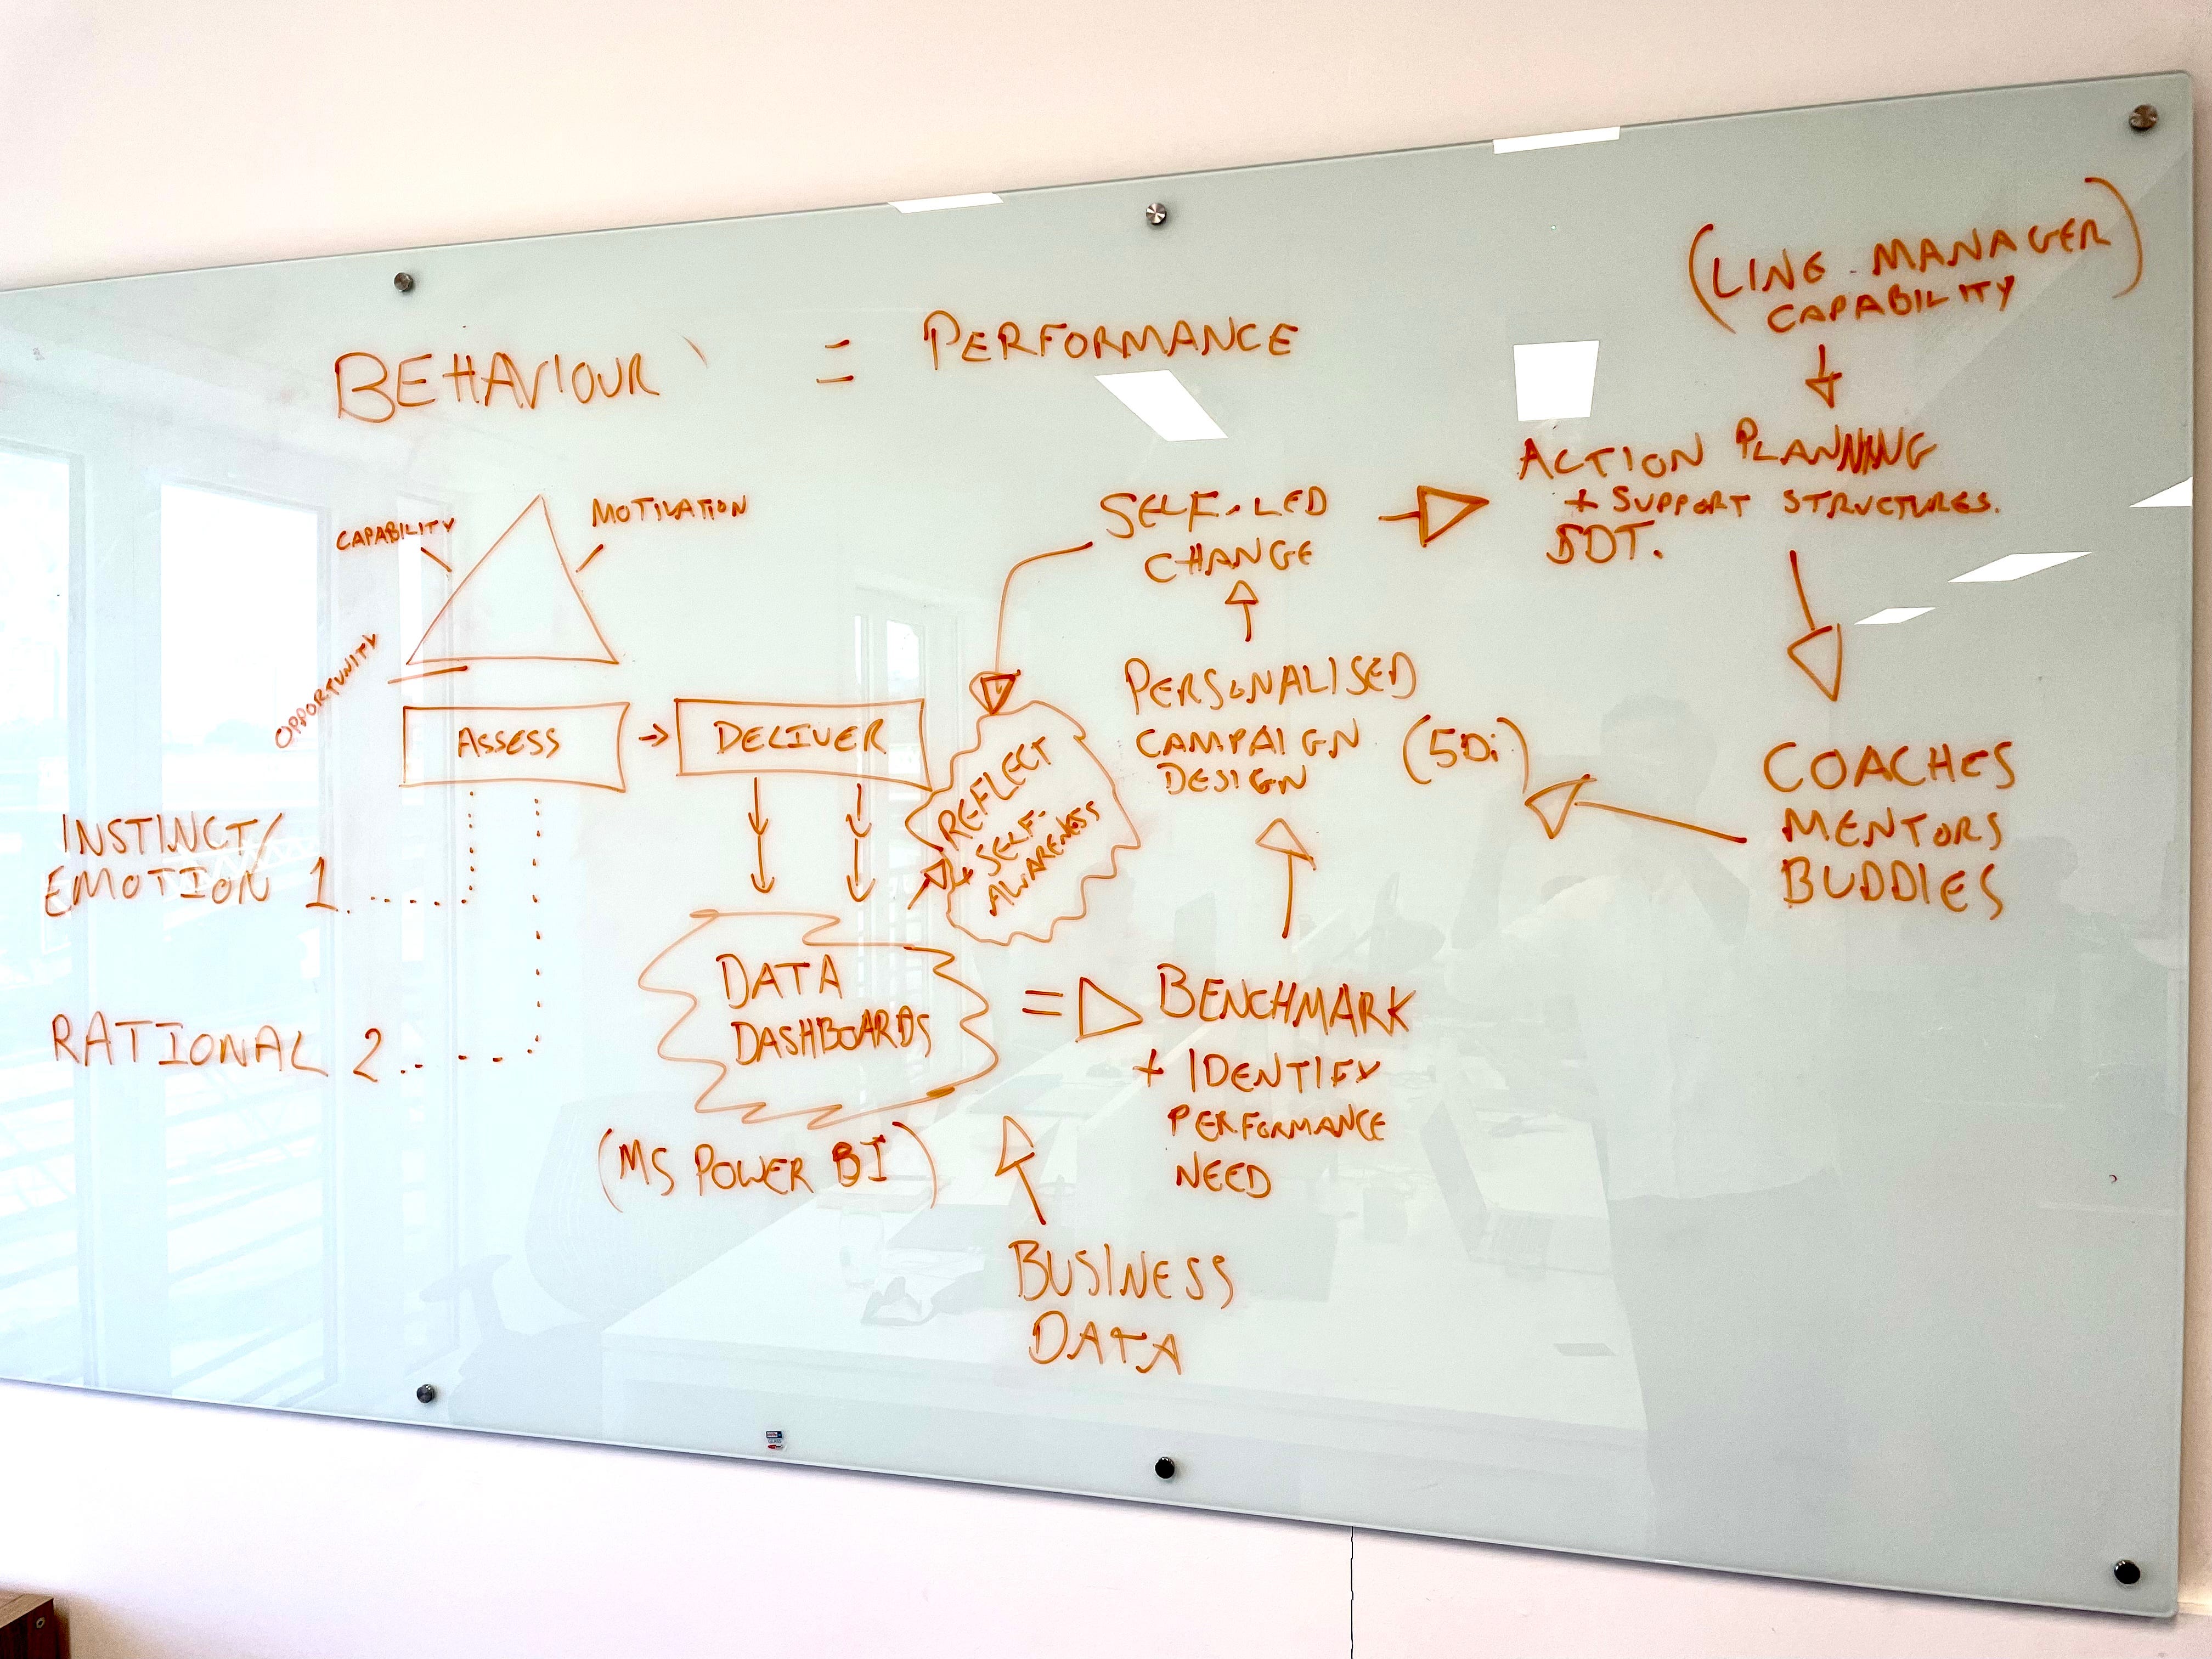 (LINE MANAGER
CAPABILITY)
BEHAVIOUR = PERFORMANCE
CAPABILITY
MOTIVATION
OPPORTUNITY
ASSESS → DELIVER
INSTINCT/
EMOTION 1
RATIONAL 2
REFLECT
+ SELF-
AWARENESS
DATA
DASHBOARDS
(MS POWER BI)
SELF-LED
CHANGE
PERSONALISED
CAMPAIGN (5Di)
DESIGN
BENCHMARK
+ IDENTIFY
PERFORMANCE
NEED
BUSINESS
DATA
ACTION PLANNING
+ SUPPORT STRUCTURES.
SDT.
COACHES
MENTORS
BUDDIES